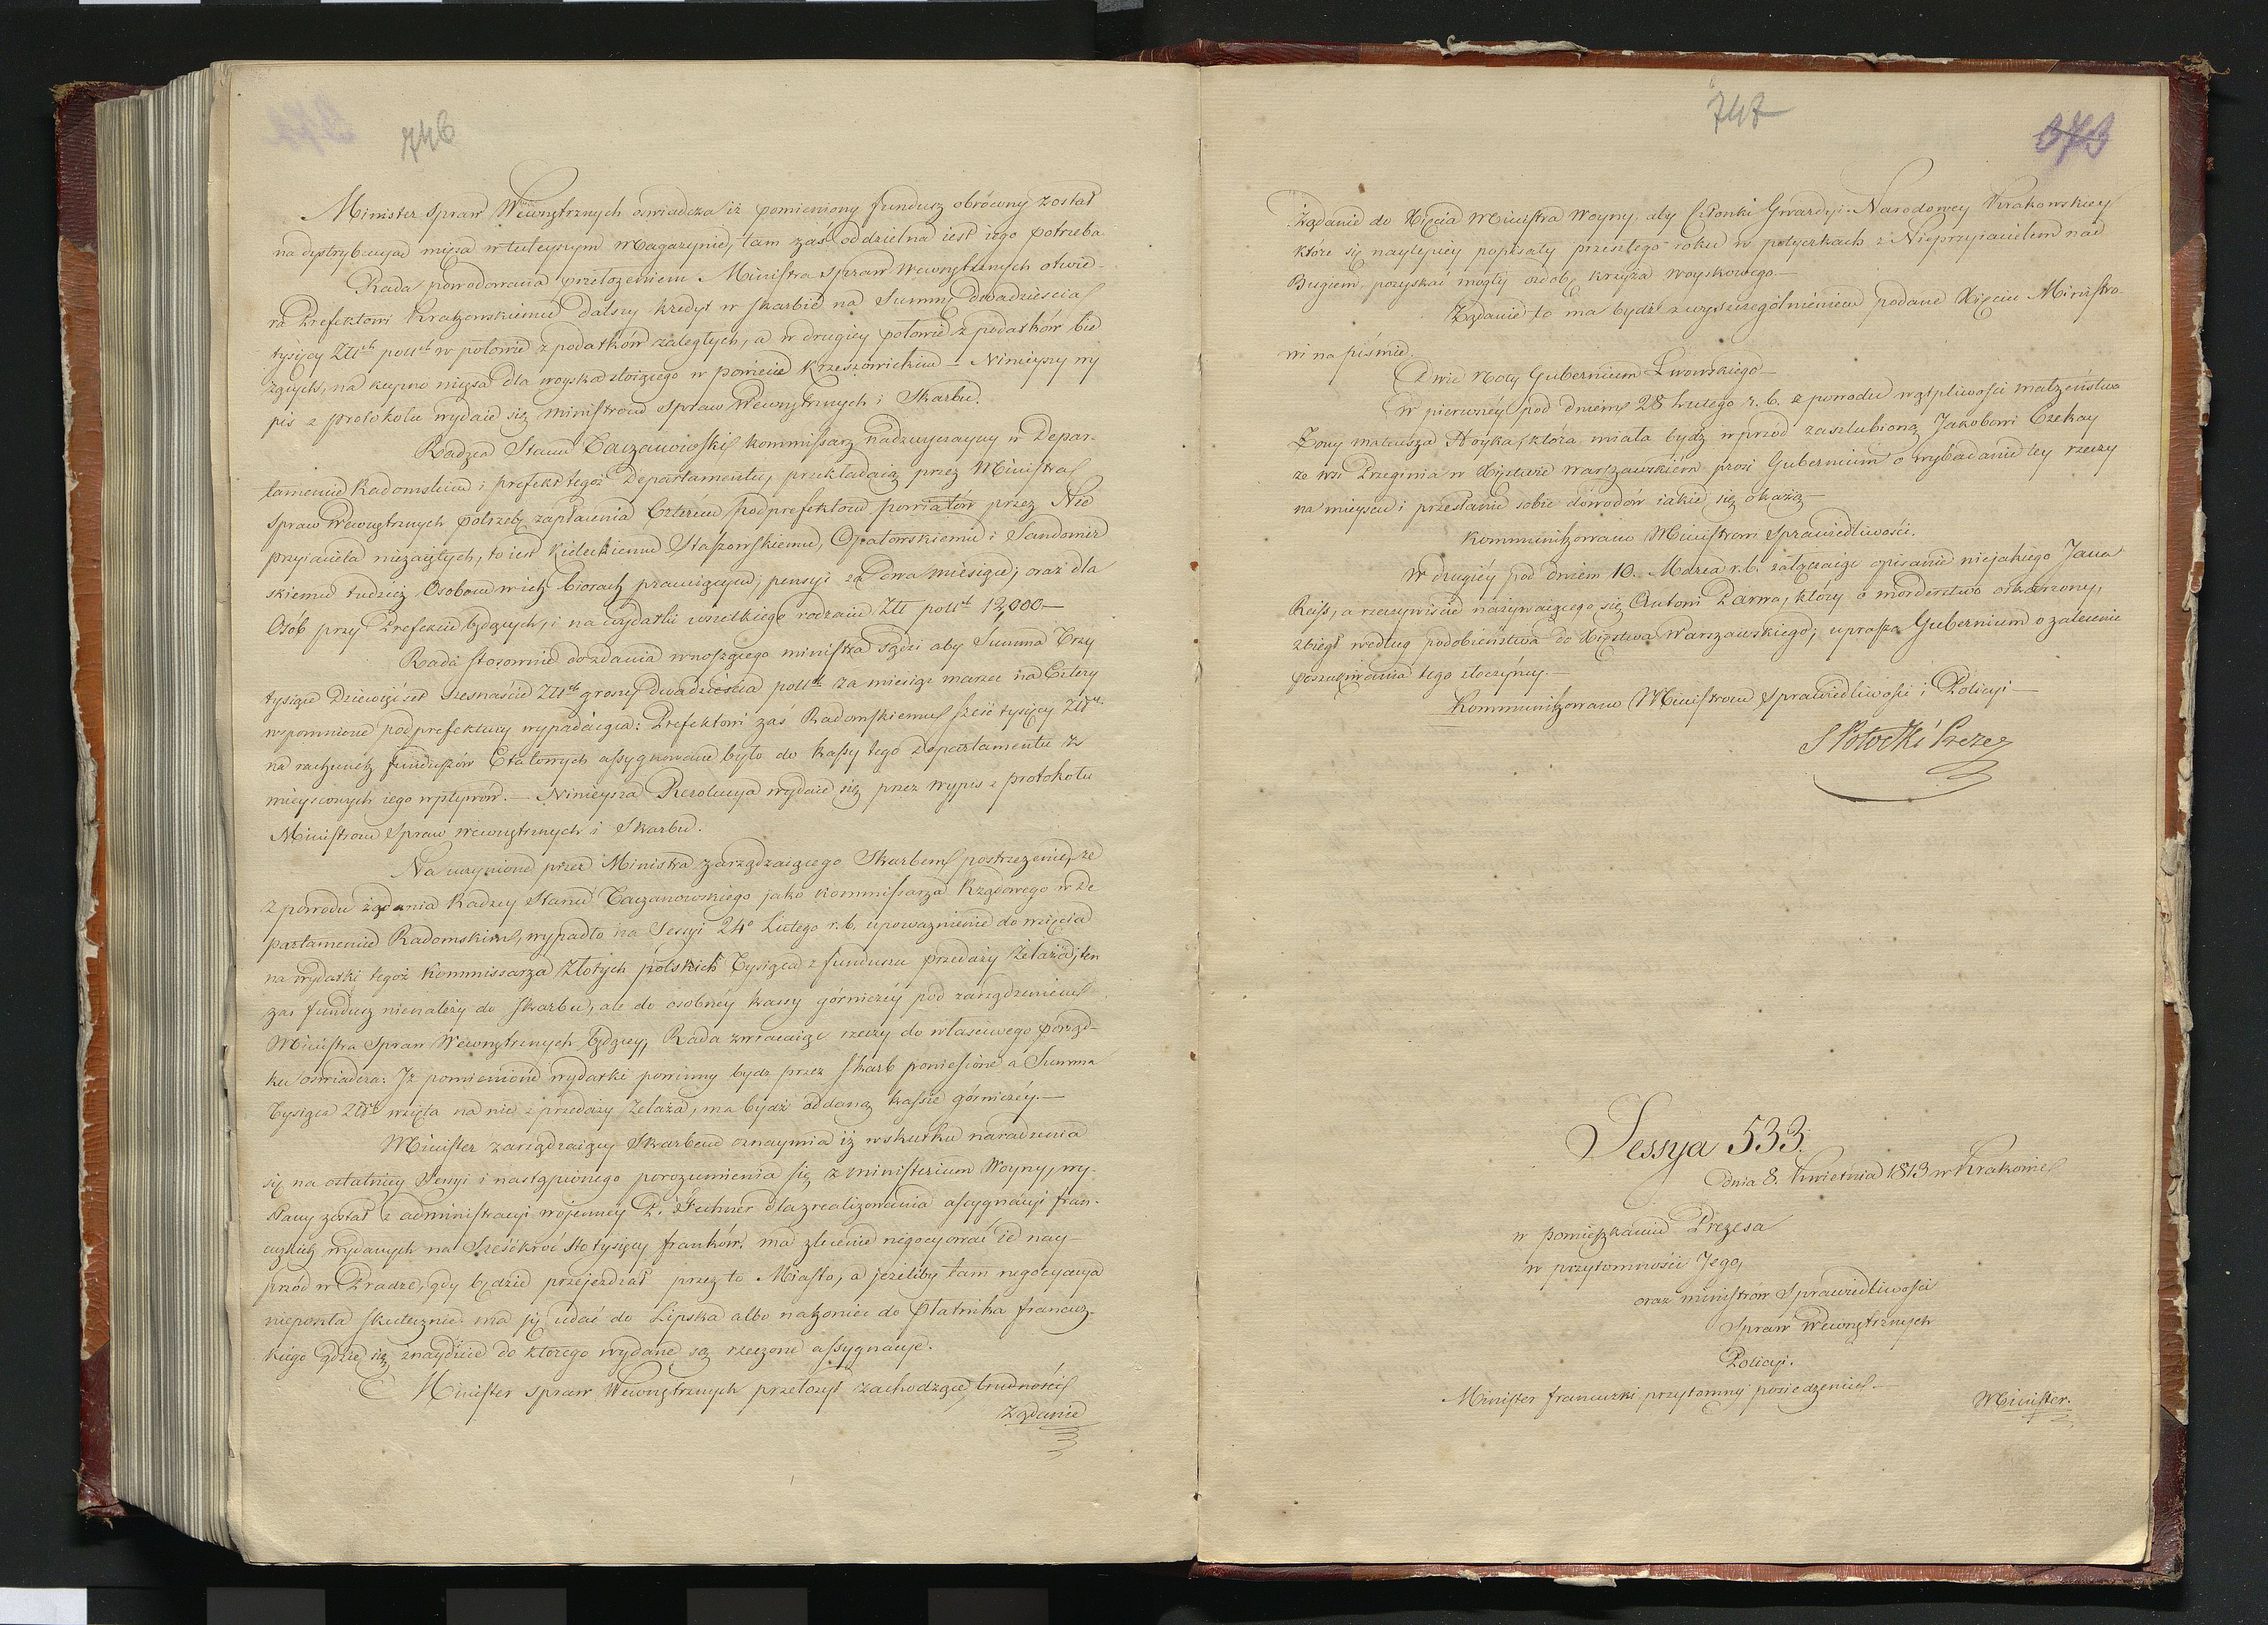 746
Minister Spraw Wewnętrznych oswiadcza iż pomieniony fundusz obrócony został
na dystrybucyą mięsa w tuteyszym Magazynie, tam zaś oddzielna iest iego potrzeba
Rada powodowana przełożeniem Ministra Spraw Wewnętrznych otwie-
ra Prefektowi Krakowskiemu dalszy kredyt w skarbie na Summę dwadzieścia
tysięcy Złłch pollch w połowie z podatków zaległych, a w drugiey połowie z podatków bie
żących, na kupno mięsa dla woyska stoiącego w powiecie Krzeszowickim – Ninieyszy wy
pis z protokołu wydaie się Ministrom Spraw Wewnętrznych i Skarbu.
Radzca Stanu Taczanowski kommissarz nadzwyczayny w Depar-
tamencie Radomskim i prefekt tegoż Departamentu, przekładaią przez Ministra
Spraw Wewnętrznych potrzebę zapłacenia Czterem podprefektom powiatów przez Nie
przyiaciela niezaiętych, to iest Kieleckiemu Staszowskiemu, Opatowskiemu i Sandomir
skiemu tudzież Osobom w ich biorach pracuiącym, pensyi za Dwa miesiące; oraz dla
Osób przy Prefekcie będących, i na wydatki wszelkiego rodzaiu Złł pollch 12,000 –
Rada stosownie do zdania wnoszącego ministra sądzi aby Summa Trzy
tysiące Dziewięćset szesnaście Złłch groszy dwadzieścia pollch za miesiąc marzec na Cztery
wspomnione podprefektury wypadaiąca: Prefektowi zaś Radomskiemu sześć tysięcy Złłch
na rachunek funduszów Etatowych assygnowane było do kassy tego Departamentu z
mieyscowych iego wpływów. – Ninieysza Rezolucya wydaie się przez wypis z protokołu
Ministrom Spraw Wewnętrznych i Skarbu.
Na uczynione przez Ministra zarządzaiącego Skarbem postrzeżenie, że
z powodu żądania Radzcy Stanu Taczanowskiego jako kommissarza Rządowego w De
partamencie Radomskim, wypadło na Sessyi 24o Lutego r. b. upoważnienie do wzięcia
na wydatki tegoż kommissarza Złotych polskich Tysiąca z funduszu przedaży żelaza, ten
zaś fundusz nienależy do Skarbu, ale do osobney kassy górniczéy pod zarządzeniem
Ministra Spraw Wewnętrznych będącey, Rada zwracaiąc rzeczy do właściwego porząd-
ku oświadcza: Iż pomienione wydatki powinny bydz przez skarb poniesione a Summa
Tysiąca Złłch wzięta na nie z przedaży żelaza, ma bydź oddaną kassie górniczéy. –
Minister zarządzaiący Skarbem oznaymia iż wskutku naradzenia
się na ostatniey Sessyi i nastąpionego porozumienia się z ministerium Woyny, wy-
słany został z administracyi wojenney P. Fechner dla zrealizowania assygnacyi fran-
cuzkich wydanych na Sześćkroć sto tysięcy franków. ma zlecenie negocyować ie nay-
przód w Pradze, gdy będzie przejeżdzał przez to Miasto, a jeżeliby tam negocyacya
nieposzła skutecznie ma ją udać do Lipska albo nakoniec do Płatnika francuz-
kiego gdzie się znaydzie do którego wydane są rzeczone assygnacye.
Minister spraw Wewnętrznych przełożył zachodzące trudności
Żądanie
747
373
Żądanie do Xięcia Ministra Woyny, aby Członki Gwardyi Narodowey Krakowskiey
które się naylepiey popisały przeszłego roku w potyczkach z Nieprzyiacielem nad
Bugiem, pozyskać mogły ozdobę krzyża woyskowego. –
Żądanie to ma bydź z wyszczególnieniem podane Xięciu Ministro-
wi na piśmie.
Dwie Noty Gubernium Lwowskiego –
W pierwszéy pod dniem 28 Lutego r. b. z powodu wątpliwości małżeństwa
Żony Mateusza Hoyka, która miała bydź wprzód zaszlubioną Jakobowi Czekay
ze wsi Przeginia w Xięstwie Warszawskiem prosi Gubernium o wybadanie tey rzeczy
na mieyscu i przesłanie sobie dowodów iakie się okażą –
Kommunikowano Ministrowi Sprawiedliwości.
W drugiéy pod dniem 10. Marca r. b. załączaiąc opisanie niejakiego Jana
Reiss, a rzeczywiście nazywaiącego się Antoni Parwa, który o morderstwo oskarżony,
zbiegł według podobieństwa do Xięstwa Warszawskiego; uprasza Gubernium o zalecenie
poszukiwania tego złoczyńcy. –
Kommunikowano Ministrom Sprawiedliwości i Policyi –
S Potocki Prezes
Sessya 533.
Dnia 8. Kwietnia 1813 w Krakowie
w pomieszkaniu Prezesa
w przytomności Jego,
oraz ministrów Sprawiedliwości
Spraw Wewnętrznych
Policyi.
Minister francuzki przytomny posiedzeniu. –
Minister.